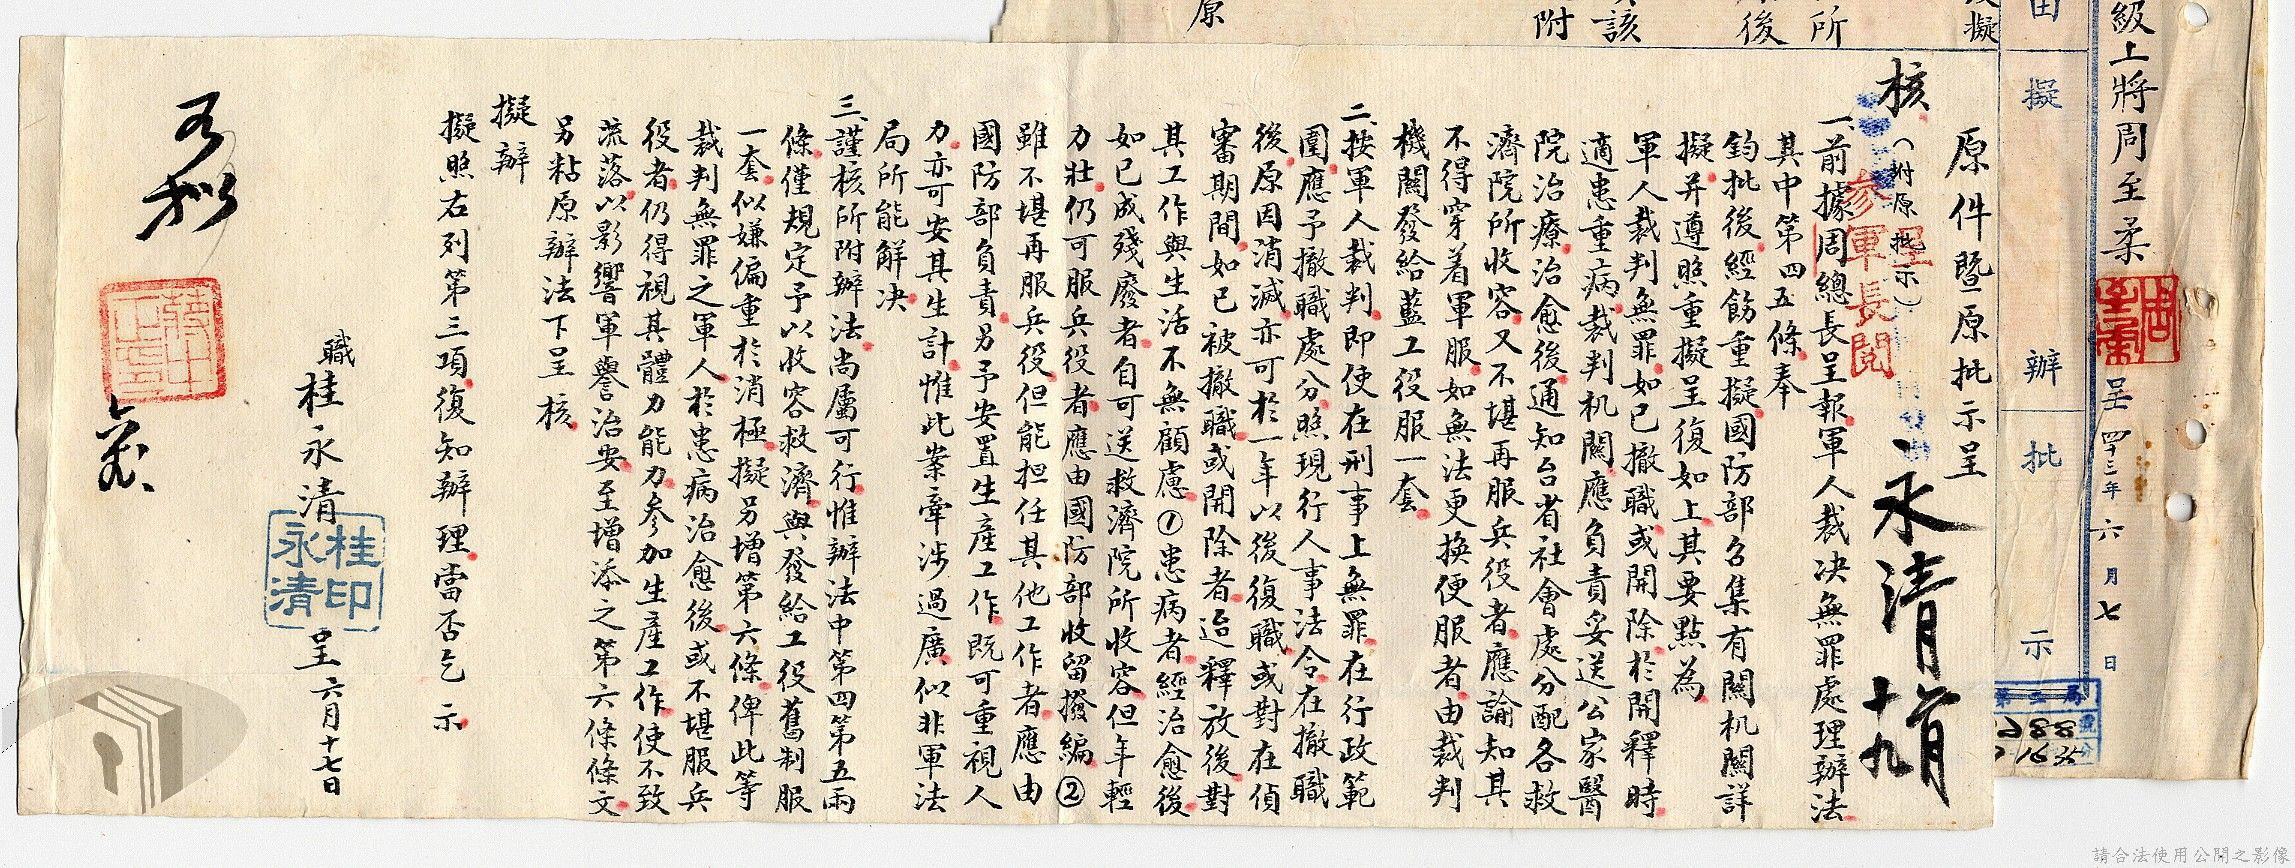 級上將周至柔
周至柔
呈 四十三年 六 月 七 日
擬 辦 批 示
原件暨原批示呈
核（附原批示）
參軍長閱
永清
一、前據周總長呈報軍人裁決無罪處理辦法
其中第四五條奉
鈞批後經飭重擬國防部召集有關机關詳
擬并遵照重擬呈復如上其要點為
軍人裁判無罪如已撤職或開除於開釋時
適患重病裁判机關應負責妥送公家醫
院治療治愈後通知台省社會處分配各救
濟院所收容又不堪再服兵役者應諭知其
不得穿着軍服如無法更換便服者由裁判
機關發給藍工役服一套
二、按軍人裁判即使在刑事上無罪在行政範
圍應予撤職處分照現行人事法令在撤職
後原因消滅亦可於一年以後復職或對在偵
審期間如已被撤職或開除者迨釋放後對
其工作與生活不無顧慮①患病者經治愈後
如已成殘廢者自可送救濟院所收容但年輕
力壯仍可服兵役者應由國防部收留撥編②
雖不堪再服兵役但能担任其他工作者應由
國防部負責另予安置生產工作既可重視人
力亦可安其生計惟此案牽涉過廣似非軍法
局所能解决
三、謹核所附辦法尚屬可行惟辦法中第四第五兩
條僅規定予以收容救濟與發給工役舊制服
一套似嫌偏重於消極擬另增第六條俾此等
裁判無罪之軍人於患病治愈後或不堪服兵
役者仍得視其體力能力參加生產工作使不致
流落以影響軍譽治安至增添之第六條條文
另粘原辦法下呈核
擬辦
擬照右列第三項復知辦理當否乞 示
職 桂永清 呈 六月十七日
桂永清印
蔣中正印
第二局
請合法使用公開之影像